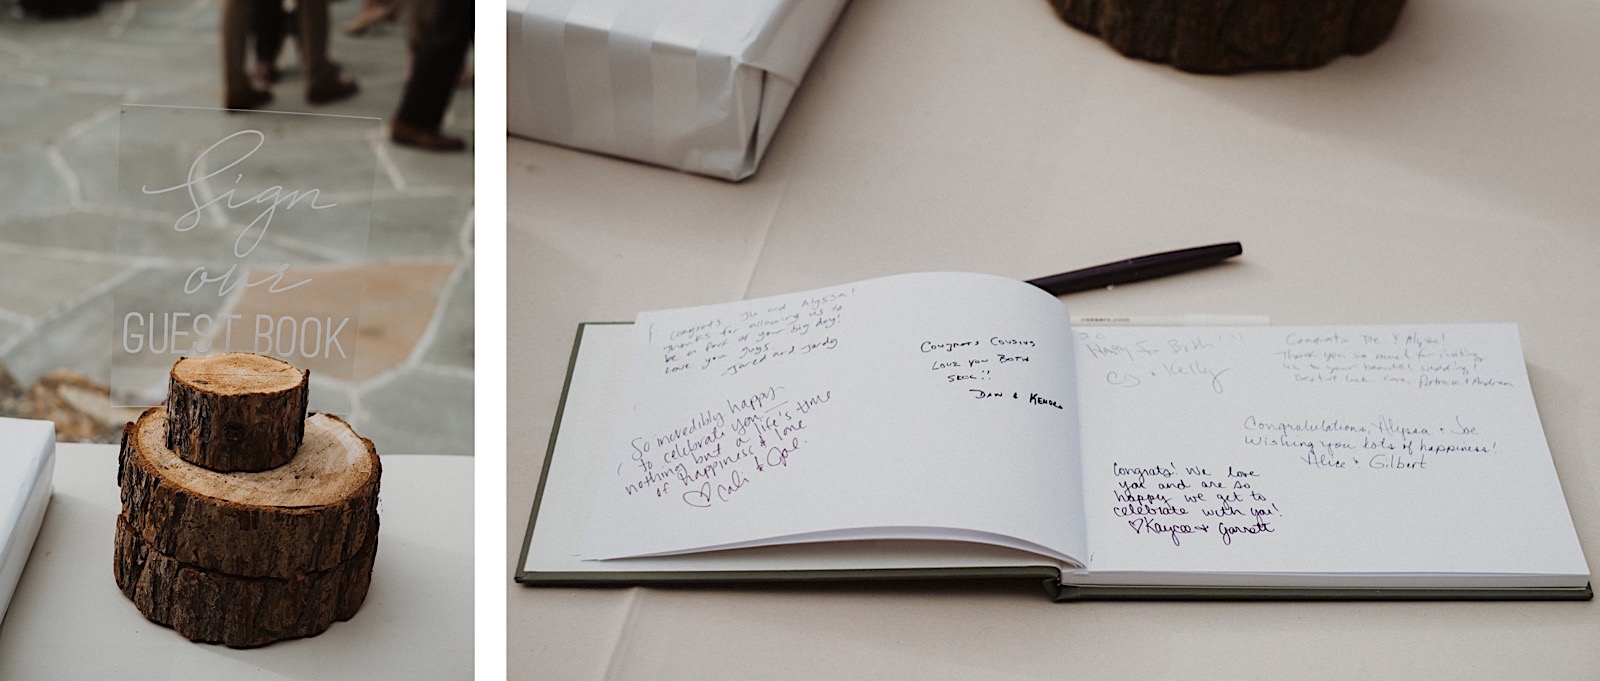 Sign
our
GUEST BOOK
Congrats Joe and Alyssa!
Thanks for allowing us to
be a part of your big day!
Love you guys,
Jared and Jordy
So incredibly happy
to celebrate you
nothing but a life's time
of happiness & love
♡ Cali & Joe.
CONGRATS COUSINS
LOVE YOU BOTH
SOOO!!
DAN & KENDRA
So
Happy For Both!!!
CJ + Kelly
Congrats Joe & Alyssa!
Thank you so much for inviting
us to your beautiful wedding!
Best of luck Love, Patrick & Andrea
Congratulations, Alyssa + Joe
Wishing you lots of happiness!
Alice + Gilbert
Congrats! We love
you and are so
happy we get to
celebrate with you!
♡ Kaycee + Garrett